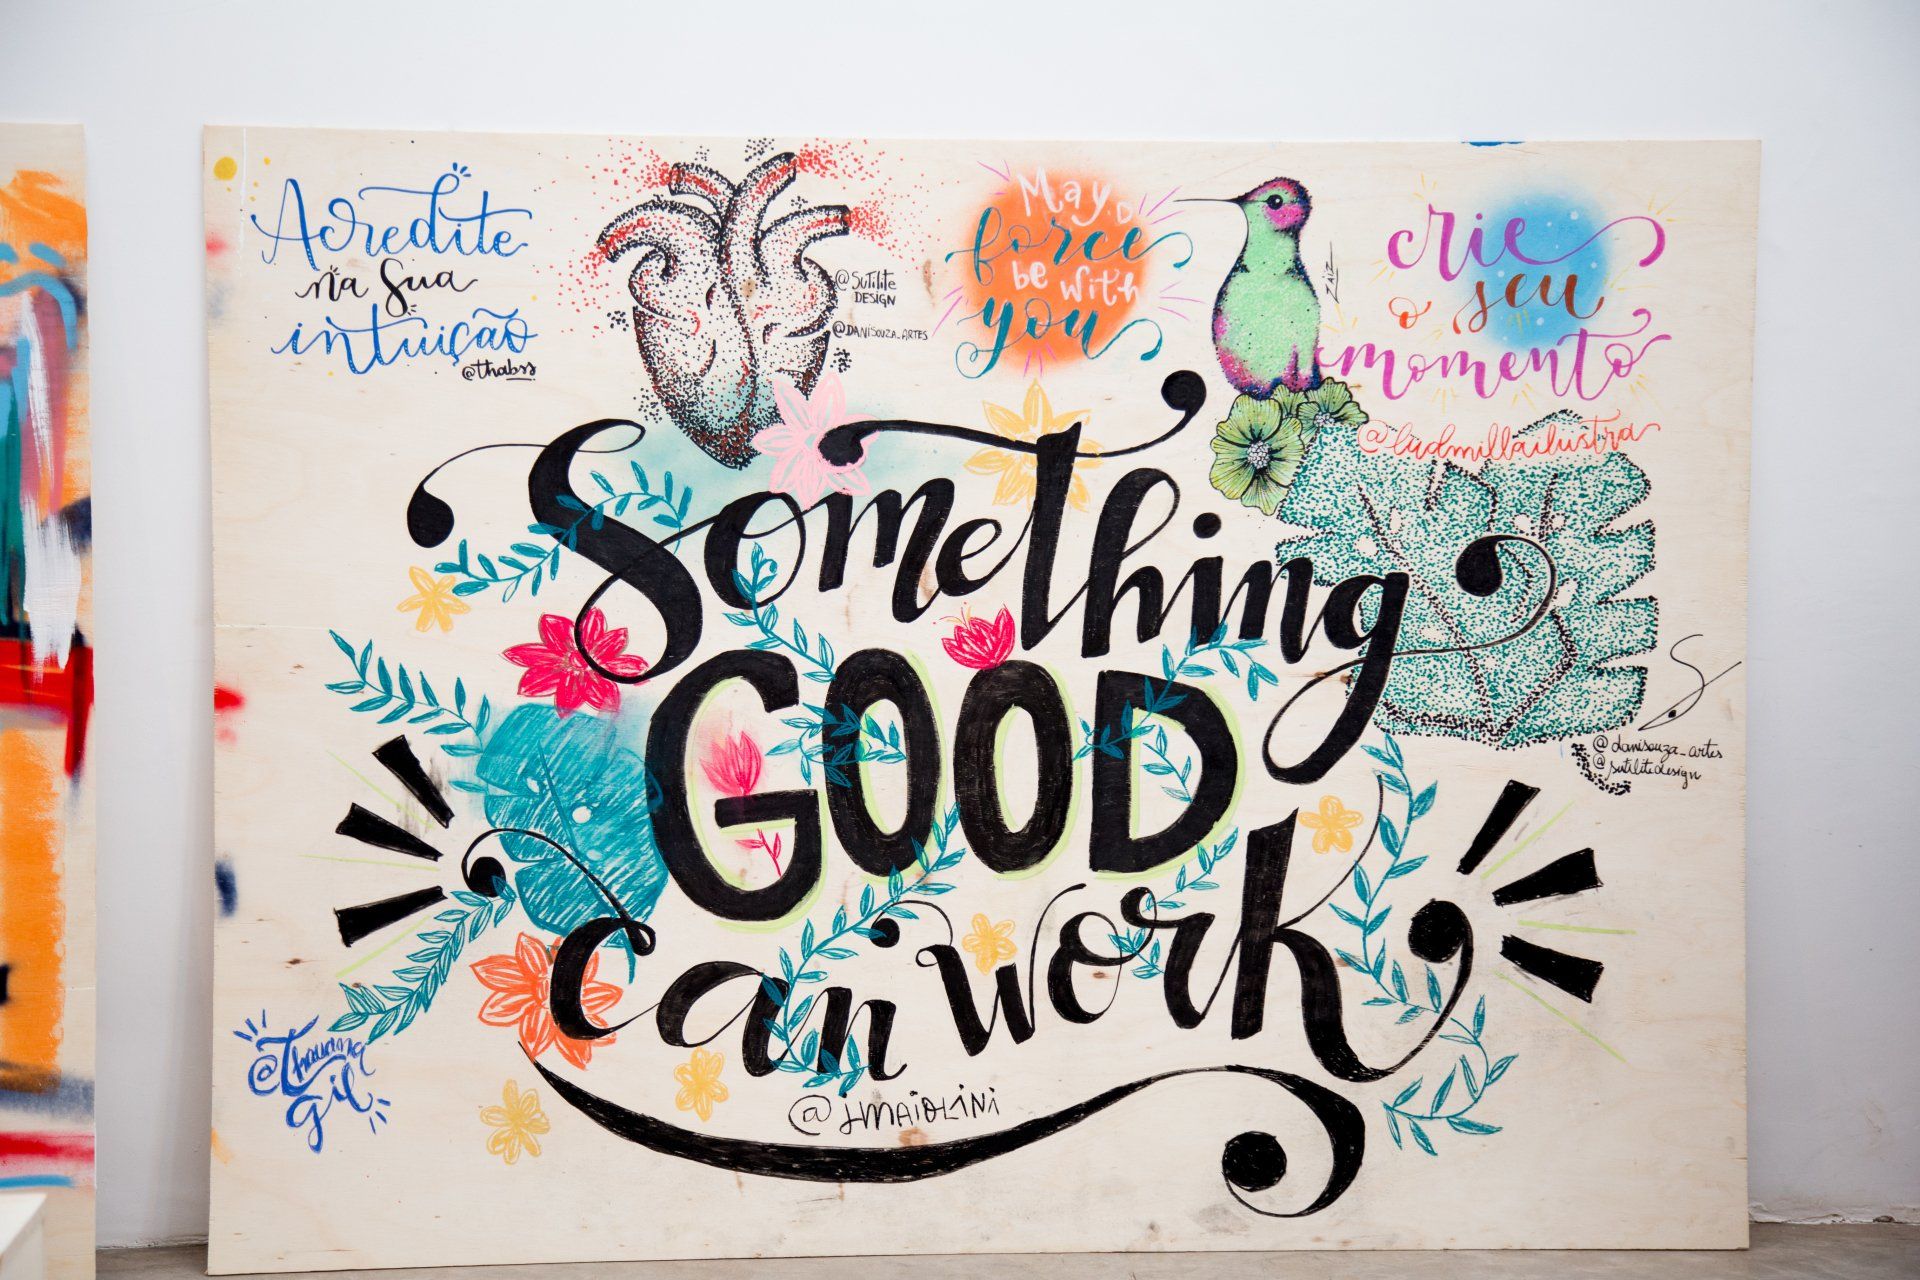 Acredite
na sua
intuição
@thabss
@SUTILITE
DESIGN
@DANISOUZA_ARTES
May D
force
be with
you
ZAIZ
crie
o seu
momento
@ludmillailustra
Something
GOOD
can work
@danisouza_artes
@sutilitedesign
@Thauana
gil
@JMAIOLINI